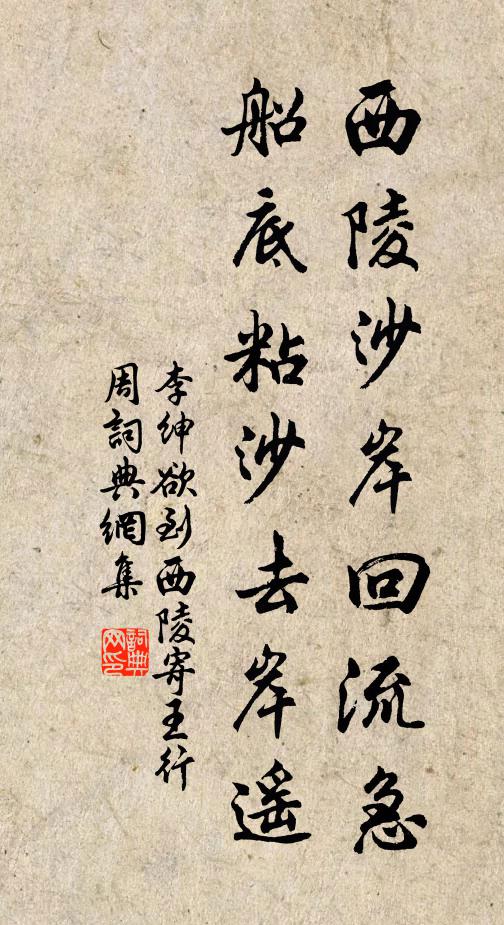 西陵沙岸回流急
船底粘沙去岸遥
李绅欲到西陵寄王行
周詞典網集
詞典
网印